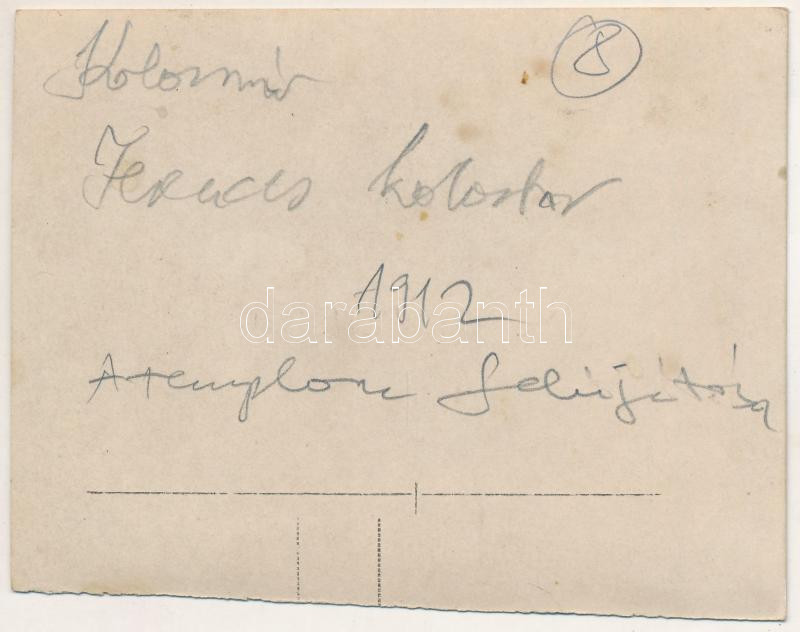 Kolozsvár
8
Ferences kolostor
1912
A templom felújítása
darabanth